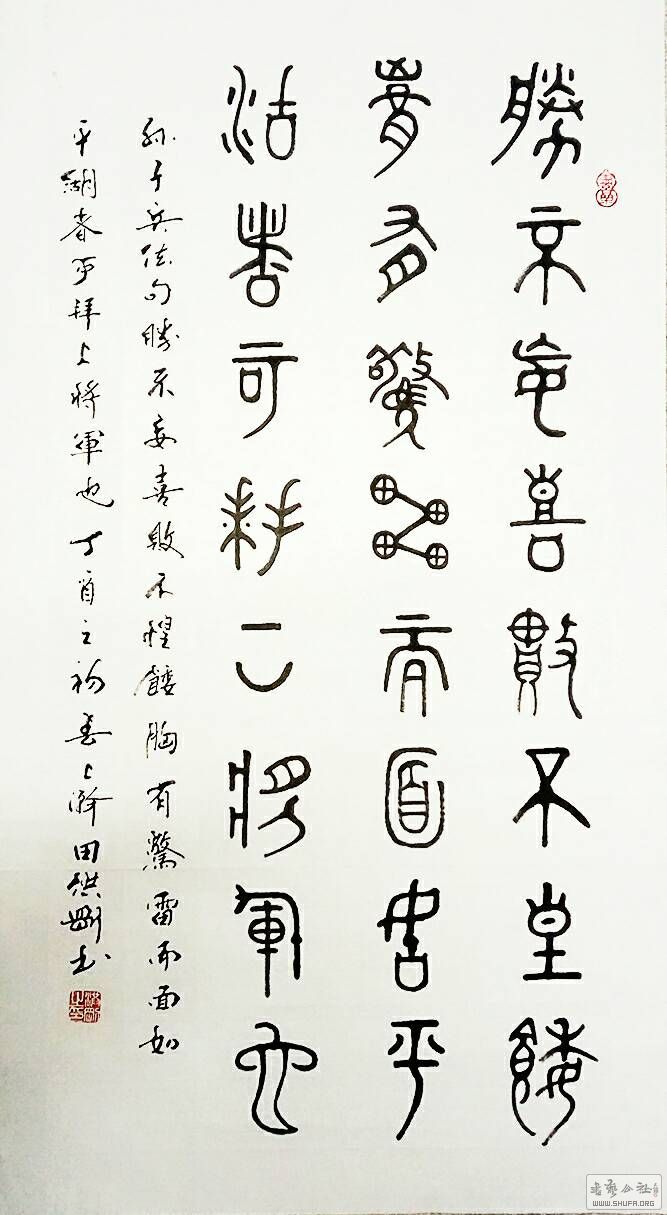 勝不妄喜敗不皇餒
胸有驚雷而面如平
湖者可拜上將軍也
孙子兵法句勝不妄喜敗不惶餒胸有驚雷而面如
平湖者可拜上將軍也丁酉之初春上澣田洪书
书艺公社
WWW.SHUFA.ORG